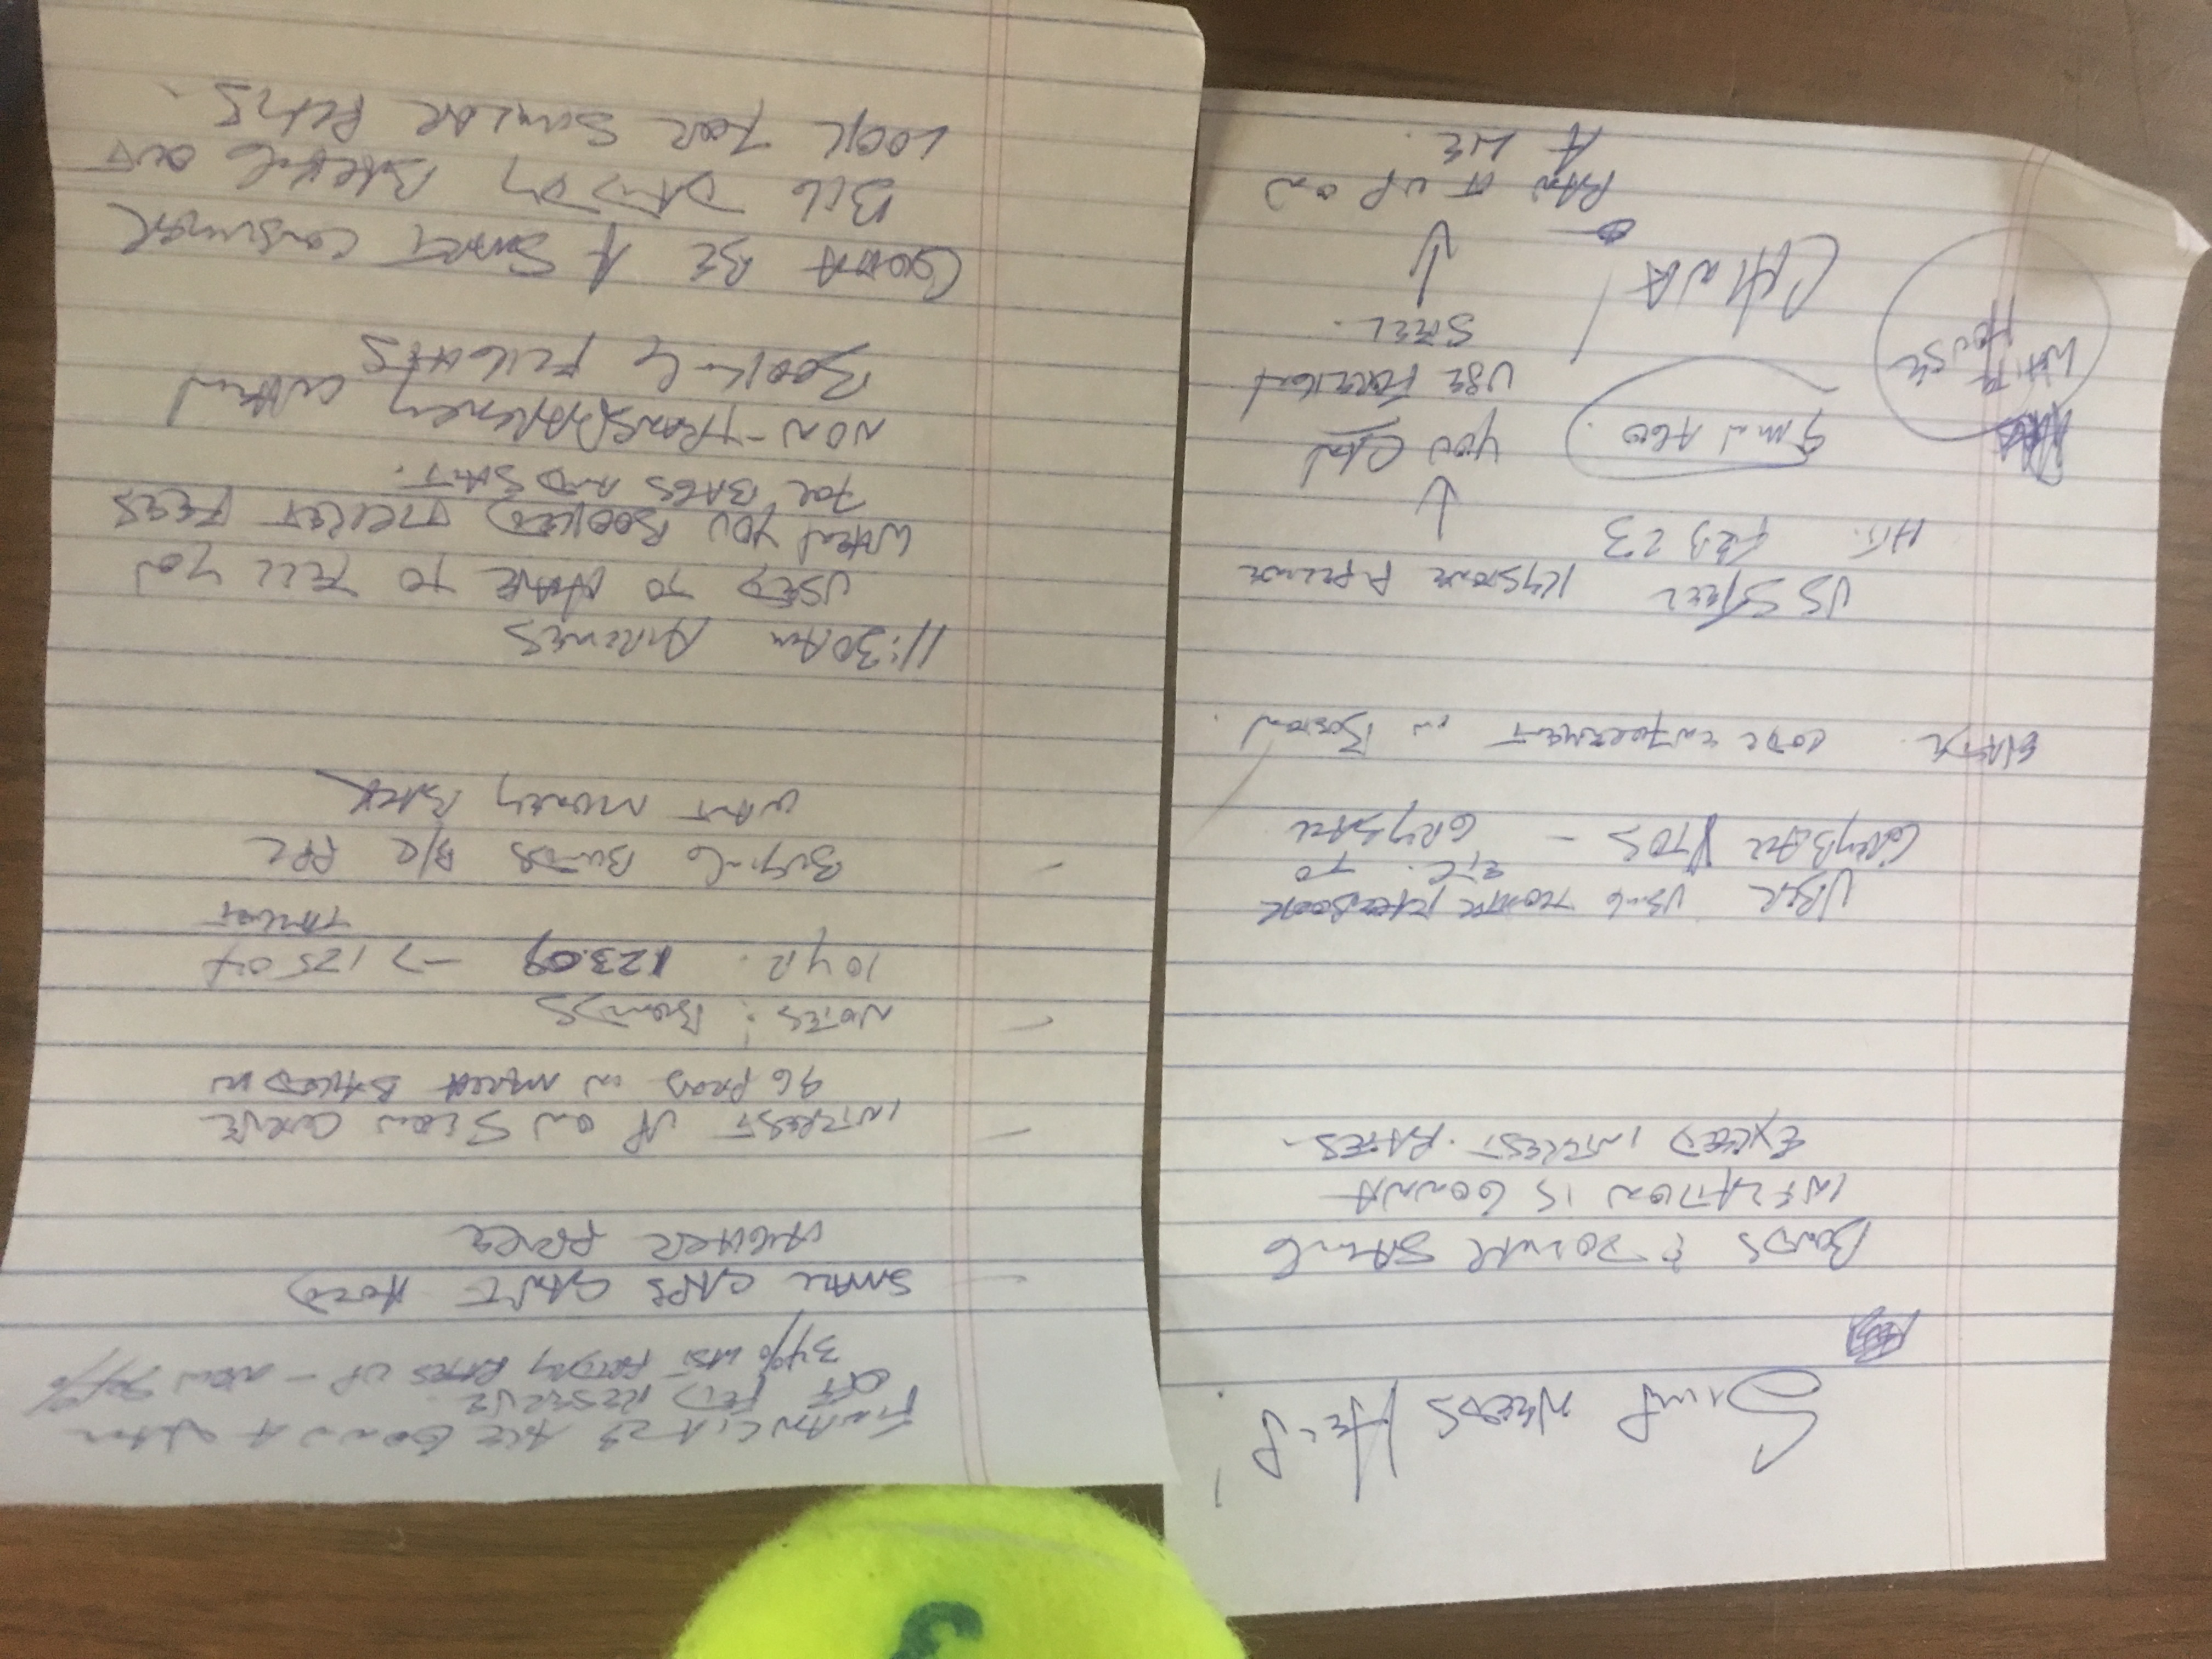 3
SIMP NEEDS HELP!
BONDS & DOLLAR SAYING
INFLATION IS GONNA
EXCEED INTEREST RATES.
UBER USING
ETC. TO
GREYBALL TOS -
EVADE CODE ENFORCEMENT IN BOSTON.
US STEEL
HIT. FEB 23
5 MIN AGO.
WHITE
HOUSE
CHINA
KEYSTONE PIPELINE
↓
YOU CAN
USE FOREIGN
STEEL.
↓
RAN IT UP ON
A LIE.
FINANCIALS ARE GONNA
OFF FED RESERVE.
34% LAST FRIDAY RATES UP - NOW
- SMALL CAPS CAN'T
HIGHER PRICE
- INTEREST UP ON SLOW CURVE
96 PROB IN MARCH BAKED IN
- NOTES: BONDS
10 YR. 123.09 → 125 04
TARGET
- BUYING BONDS B/C PPL
WANT MONEY BACK
11:30 AM AIRLINES
USED TO HAVE TO TELL YOU
WHEN YOU BOOKED TICKET FEES
FOR BAGS AND SEAT.
NON-TRANSPARENCY WHEN
BOOKING FLIGHTS
GOTTA BE A SMART CONSUMER
BIG DADDY BACKING OUT
LOOK FOR SIMILAR PLAYS.